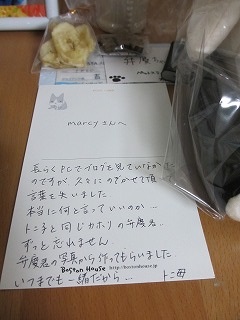 弁慶ちゃ
marcyさんへ
長らくPCでブログを見ていなかった
のですが 久々にのぞかせて頂
言葉を失いました
本当に何と言っていいのか…
トニ子と同じカホリの弁慶君…
ずっと忘れません
弁慶君の写真から作ってもらいました
Boston House http://bostonhouse.jp
いつまでも一緒だから… トニ母